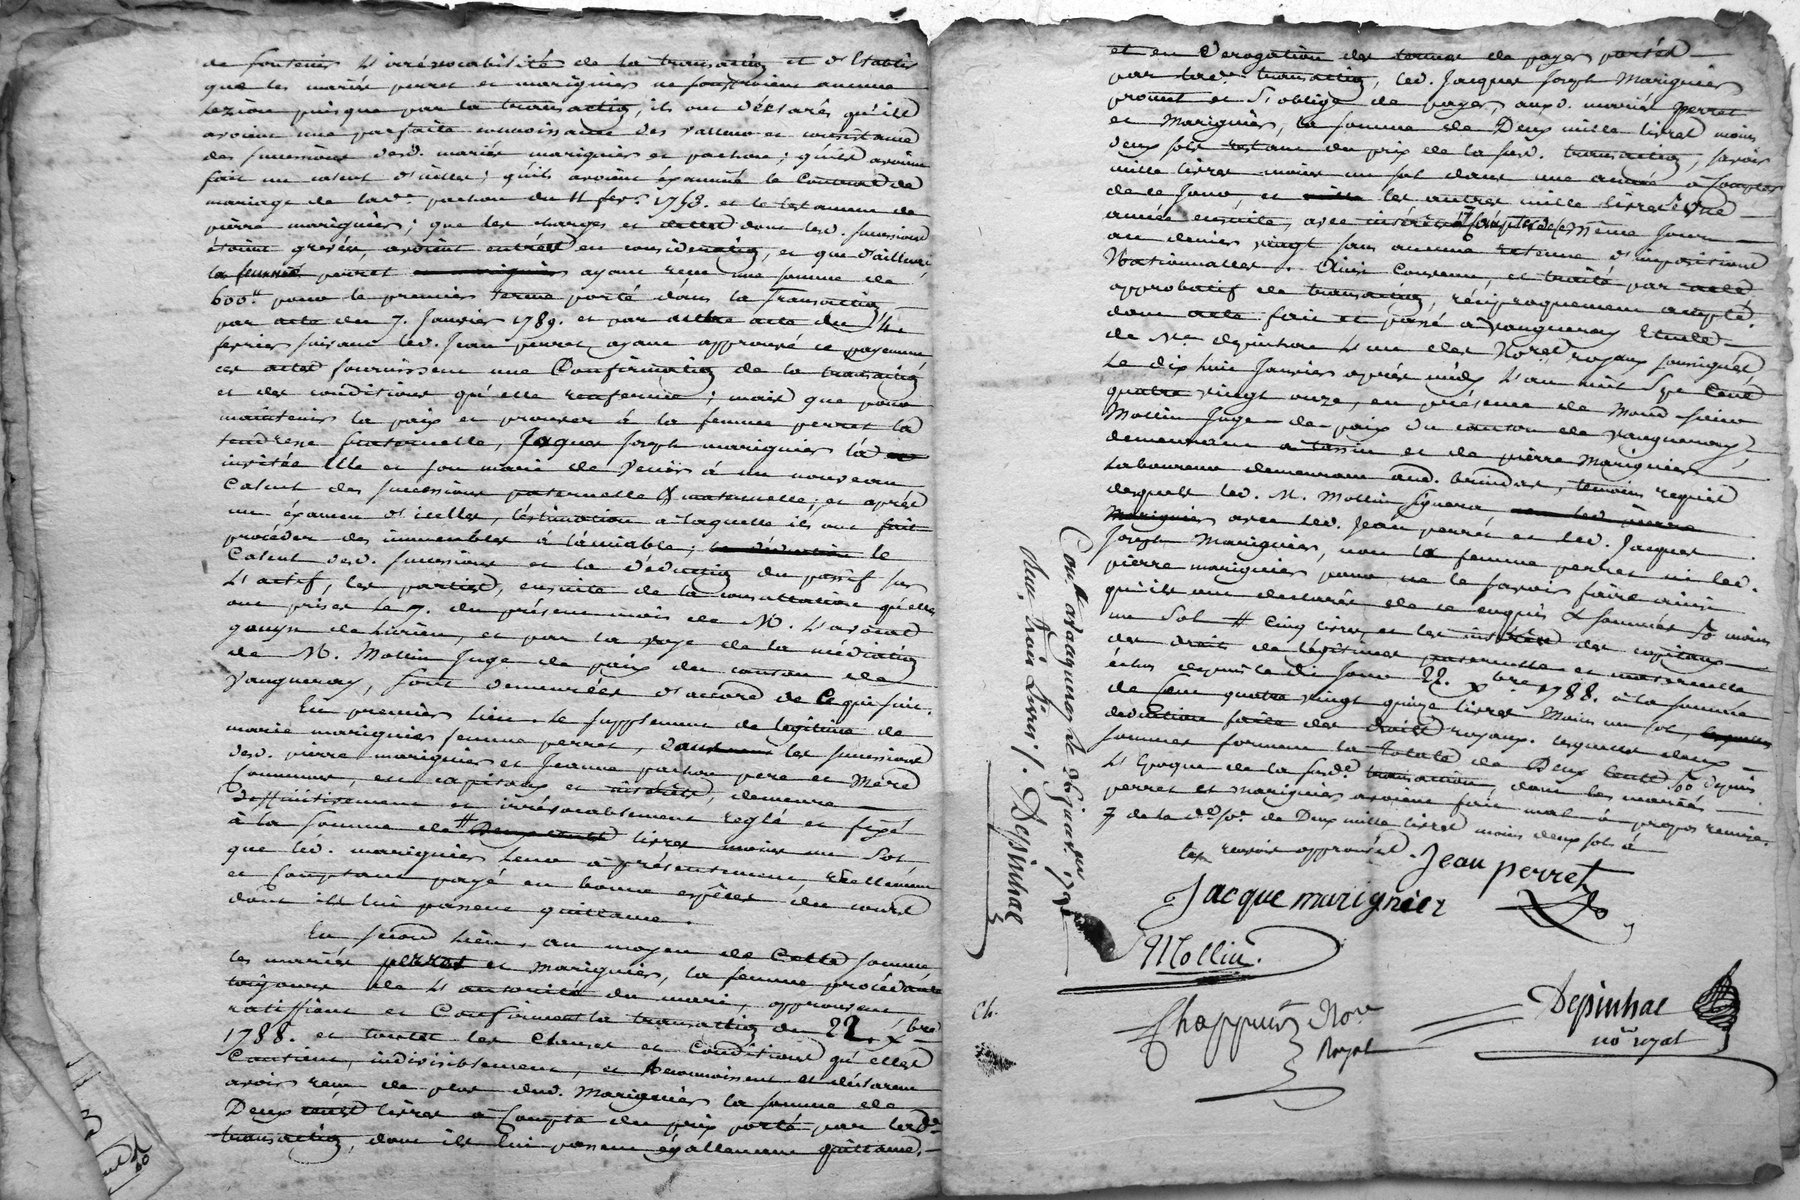 de soutenir L'irrévocabilité de la transaction et d'Etablir
que les mariés perret et marignier ne souffroient aucune
lezion puisque par la transaction, ils ont déclarés qu'ils
avoient une parfaite connoissance des valleurs et consistance
des successions desd. mariés marignier et pachon; qu'ils avoient
fait un calcul d'icelles; qu'ils avoient éxaminé le Contrat de
mariage de lad.e pachon du 11 fev.r 1758. et le testament de
pierre marignier; que les charges et dettes dont lesd. successions
étoient grevées, avoient entrées en considération, et que d'ailleurs
la femme perret ayant reçu une somme de
600.# pour le premier terme porté dans la Transaction
par acte du 7. Janvier 1789. et par autre acte du 14
fevrier suivant led. Jean perret ayant approuvé ce payement
ces actes fournissent une Confirmation de la transaction
et des conditions qu'elle renferme; mais que pour
maintenir la paix et prouver à la femme perret la
tendresse fraternelle, Jaques Joseph marignier l'a
invitée Elle et son mari de venir à un nouveau
Calcul des successions paternelle & maternelle; et après
un éxamen d'icelles, l'éstimation à laquelle ils ont fait
procéder des immeubles à l'amiable; le
Calcul desd. successions et la déduction du passif sur
L'actif, les parties, ensuite de la consultation qu'elles
ont prises le 7. du présent mois de M. L'avocat
et par la voye de la médiation
de M. Mollin Juge de paix du canton de
Vaugneray, sont demeurées d'accord de Ce qui suit.
En premier lieu, le supplement de légitime de
marie marignier femme perret, dans les successions
desd. pierre marignier et Jeanne pachon pere et Mère
Communs, en capitaux et intérêts, demeure
deffinitivement et irrévocablement reglé et fixé
à la somme de # livres moins un Sol,
que led. marignier leur a présentement, réellement
et Comptant payé en bonnes espèces du cours
dont ils lui passent quittance.
En second Lieu, au moyen de Cette somme
les mariés perret et Marignier, la femme procédante
toujours de L'autorité du mari, approuvent
ratiffient et Confirment la transaction du 22. Xbre
1788. et toutes les Clauses et Conditions qu'elles
Contient, indivisiblement, et Reconnoissent et déclarent
avoir reçu de plus dud. Marignier la somme de
Deux cents livres à Compte du prix porté par lad.e
transaction, dont ils lui passent égallement quittance.
et en Dérogation des termes de payer portés
par lad.e transaction, led. Jacques Joseph Marignier
promet et S'oblige de payer, auxd. mariés perret
et Marignier, la somme de Deux mille livres moins
deux sols restant du prix de la susd. transaction, savoir
mille livres moins un sol dans une année à Compter
de ce Jour, et les autres mille livres Une
année ensuite, avec intérêts à Compter de ce même Jour
au denier vingt sans aucune retenue d'impositions
Nationnalles. Ainsi Convenu, et traité par acte
approbatif de transaction, réciproquement accepté.
dont acte fait et passé à Vaugneray Etude
de Me depinhac L'un des Nores royaux soussignés
Le dix huit Janvier après midy L'an mil Sept Cent
quatre vingt onze, en présence de Mons.r
Mollin Juge de paix du canton de Vaugneray,
demeurant à tassin et de pierre Marignier
Laboureur demeurant aud. brindas, témoins requis
desquels led. M. Mollin Signera
avec led. Jean perret et led. Jacques
Joseph Marignier, non la femme perret ni led.
pierre marignier pour ne le savoir faire ainsi
qu'ils ont declarés de ce enquis & sommés
un Sol # Cinq livres et les intérêts des capitaux
des droits de légitimes paternelle et maternelle
échus depuis le di Jour 22. Xbre 1788. à la somme
de Cent quatre vingt quinze livres Moins un sol,
déduction faite des droits royaux. lesquelles deux
sommes forment la totale de Deux cents depuis
L'Epoque de la susd.e transaction, dont les mariés
perret et Marignier avoient fait mal à propos remise.
7 de la d.e so.e de Deux mille livres moins deux sols à
les renvois approuvés.
Jean perret
Jacque marignier
Mollin.
Chappuis Nore
Royal
Depinhac
no.re royal
Con.lé à Vaugneray le 26 janv.er 1791
Reçu trois Livres /. Depinhac
Ch.